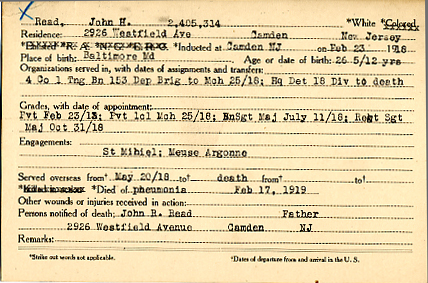 Read, John H. 2,405,314 *White *Colored
Residence: 2926 Westfield Ave Camden New Jersey
*Inducted at Camden NJ on Feb 23 1918
Place of birth: Baltimore Md Age or date of birth: 26 5/12 yrs
Organizations served in, with dates of assignments and transfers:
4 Co 1 Tng Bn 153 Dep Brig to Mch 25/18; Hq Det 18 Div to death
Grades, with date of appointment:
Pvt Feb 23/18; Pvt 1cl Mch 25/18; BnSgt Maj July 11/18; Regt Sgt
Maj Oct 31/18
Engagements:
St Mihiel; Meuse Argonne
Served overseas from† May 20/18 to† death from† to†
*Killed in action *Died of pneumonia Feb 17, 1919
Other wounds or injuries received in action:
Persons notified of death: John R. Read Father
2926 Westfield Avenue Camden NJ
Remarks:
*Strike out words not applicable. †Dates of departure from and arrival in the U. S.